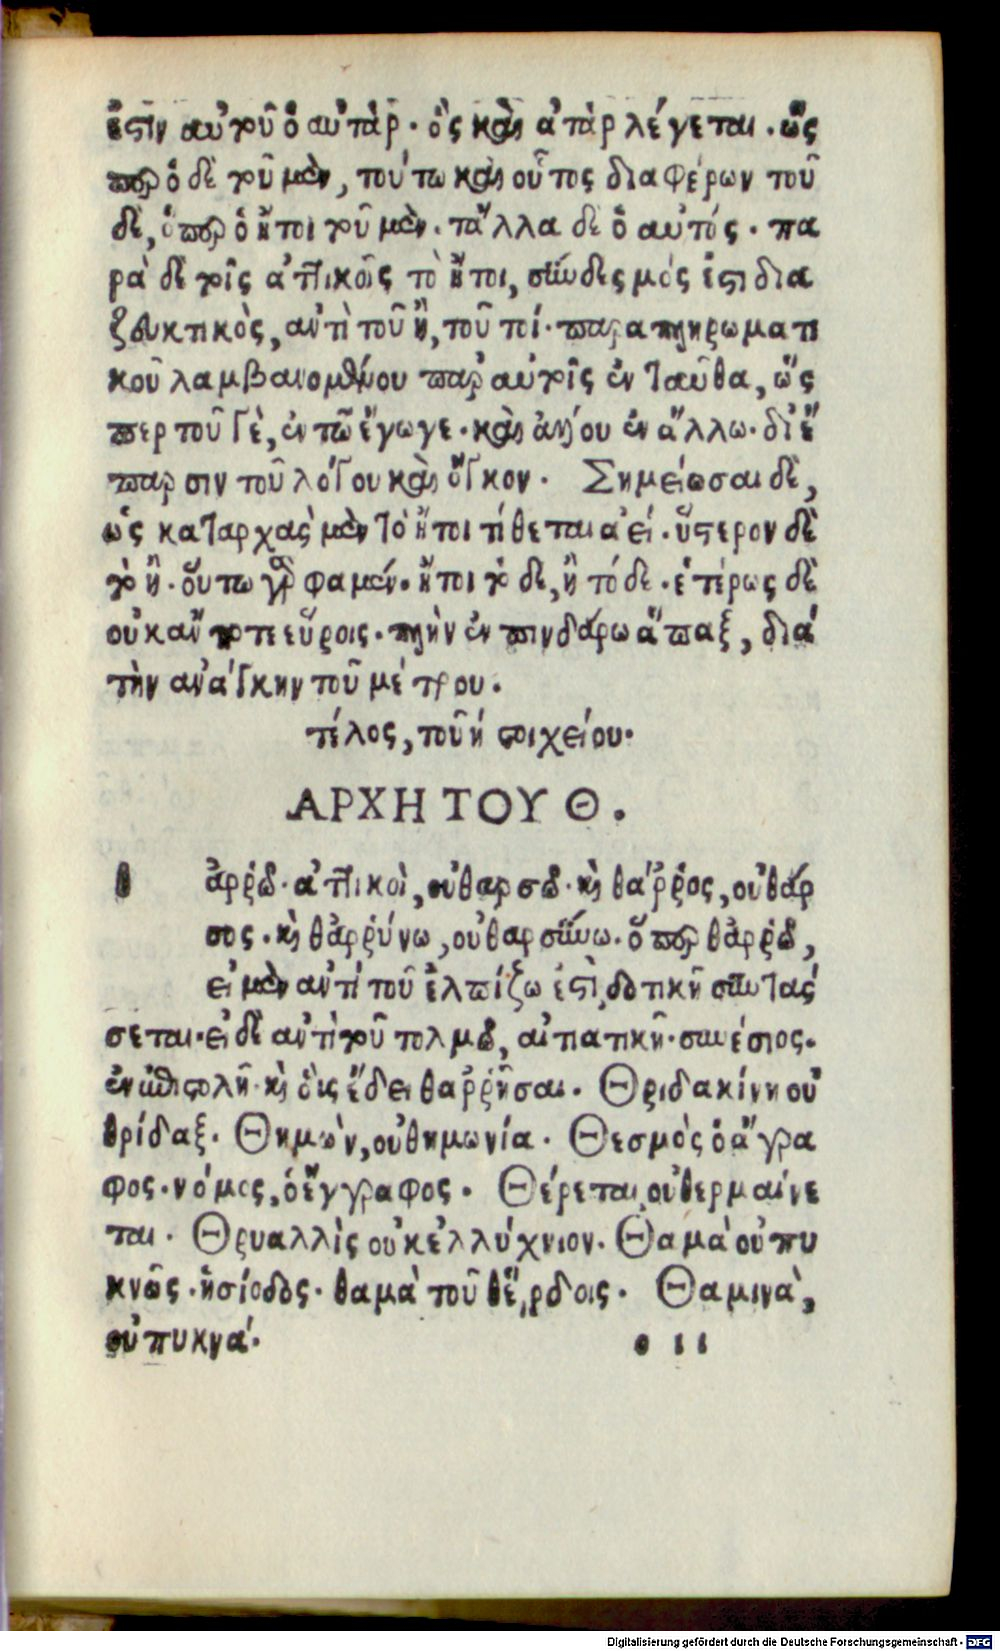 ἐστὶν αὐτοῦ ὁ αὐτὰρ. ὃς καὶ ἀτὰρ λέγεται. ὥς
περ ὁ δὲ τοῦ μὲν, τούτω καὶ οὗτος διαφέρων τοῦ
δὲ, ᾧπερ ὁ ἤτοι τοῦ μὲν. τἄλλα δὲ ὁ αὐτός. πα
ρὰ δὲ τοῖς ἀττικοῖς τὸ ἤτοι, σύνδεσμός ἐστι δια
ζευκτικὸς, ἀντὶ τοῦ ἢ, τοῦ τοί. παραπληρωματι
κοῦ λαμβανομένου παρ' αὐτοῖς ἐνταῦθα, ὥς
περ τοῦ γὲ, ἐν τῶ ἔγωγε. καὶ ἀντ' οὐ ἐν ἄλλω. δι' ἔ
παρσιν τοῦ λόγου καὶ ὄγκον. Σημείωσαι δὲ,
ὡς καταρχὰς μὲν τὸ ἤτοι τίθεται ἀεί. ὕστερον δὲ
τὸ ἢ. οὕτω γάρ φαμέν. ἤτοι τὸ δε, ἢ τόδε. ἑτέρως δὲ
οὐκ ἄν ποτε εὕροις. πλὴν ἐν πινδάρω ἅπαξ, διὰ
τὴν ἀνάγκην τοῦ μέτρου.
τέλος, τοῦ ή στοιχείου.
ΑΡΧΗ ΤΟΥ Θ.
θ αρρῶ. ἀττικοὶ, οὐ θαρσῶ. καὶ θάρρος, οὐ θάρ
σος. καὶ θαρρύνω, οὐ θαρσύνω. ὅπερ θαρρῶ,
εἰ μὲν ἀντὶ τοῦ ἐλπίζω ἐστὶ, δοτικῆ συντάσ
σεται. εἰ δὲ ἀντὶ τοῦ τολμῶ, αἰτιατικῆ. συνέσιος.
ἐν ἐπιστολῆ. καὶ δὶς ἔδει θαρρῆσαι. Θριδακίνη οὐ
θρίδαξ. Θημὼν, οὐ θημωνία. Θεσμὸς ὁ ἄγρα
φος. νόμος, ὁ ἔγγραφος. Θέρεται, οὐ θερμαίνε
ται. Θρυαλλὶς οὐκ ἐλλύχνιον. Θαμὰ οὐ πυ
κνῶς. ἡσίοδος. θαμὰ τοῦ θ' ἕρδοις. Θαμινὰ,
οὐ πυκνά.
ο ιι
Digitalisierung gefördert durch die Deutsche Forschungsgemeinschaft - DFG